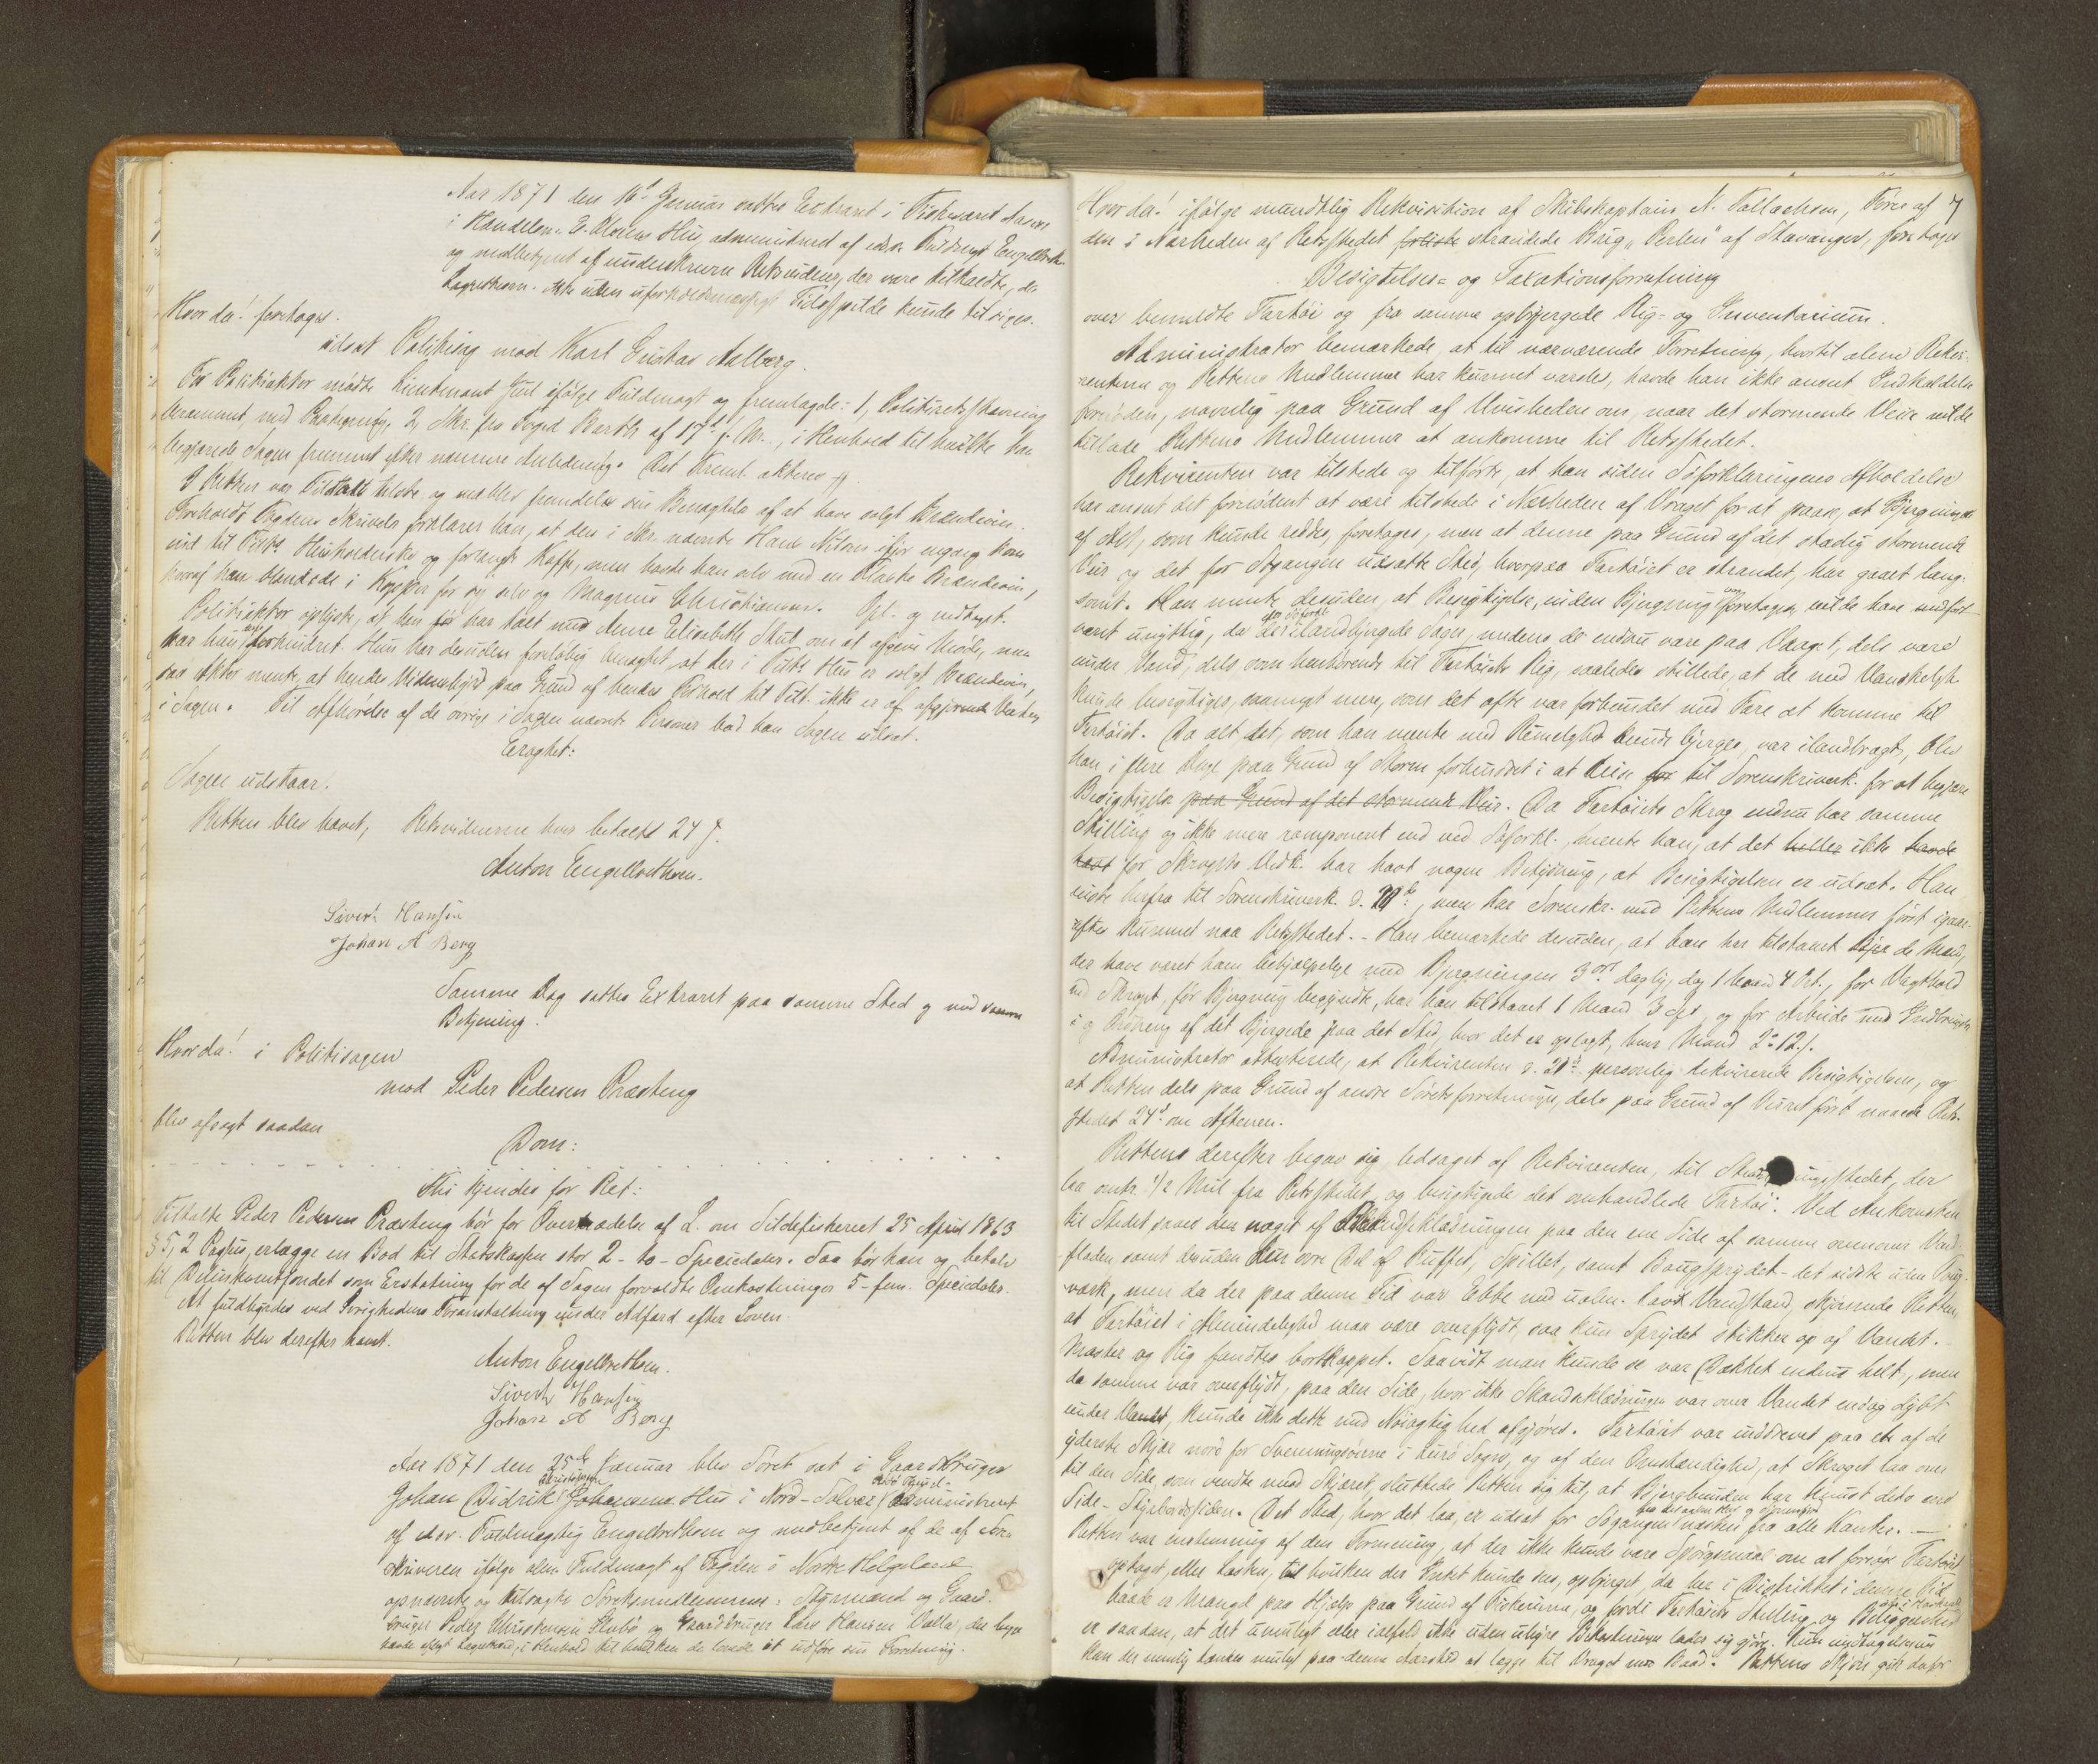 Aar 1871 den 18d Januar sattes Extraret i Fiskeværet Aasvær
i Handelsm. E. Olsens Hus, administreret af edsv. Fuldmægt Engelbrethsen
og medbetjent af underskrevne Retsvidner, der vare tilkaldte, da
Lagrettesm. ikke uden uforholdsmæssigt Tidsspilde kunde tilsiges.
Hvor da! foretoges
udsat Politiforhør mod Karl Gustav Aalberg.
For Politiaktor mødte Lieutenant Juul ifølge Fuldmagt og fremlagde: 1, Politiretsstævning
berammet, med Paategning, 2, Skr. fra Foged Barth af 17d f. M., i Henhold til hvilke han
begjærede Sagen fremmet efter nærmere Anledning. Det Freml. akteres #.
I Retten var Tiltalte tilstede og vedblev fremdeles sin Benægtelse af at have solgt Brændevin.
Foreholdt Fogdens Skrivelse forklarer han, at den i Skr. nævnte Hans Nilsen ifjor engang kom
ind til Tilt.s Husholderske og forlangte Kaffe, men havde han selv med en Flaske Brændevin,
hvoraf han blandede i Koppen for sig selv og Magnus Christiansen. Opl. og vedtaget.
Politiaktor oplyste, at han før har talt med denne Elisabeth Skut om at afgive Møde, men
har hun været forhindret. Hun har desuden foreløbig benægtet, at der i Tilt.s Hus er solgt Brændevin,
saa Aktor mente, at hendes Vidnesbyrd paa Grund af hendes Forhold til Tilt. ikke er af afgjørende Vægt
i Sagen. Til Afhørelse af de øvrige i Sagen nævnte Personer bad han Sagen udsat.
Eragtet:
Sagen udstaar.
Retten blev hævet, Retsvidnerne hver betalt 24 ſ.
Anton Engelbrethsen.
Sivert Hansen
Johan A Berg
Samme Dag sattes Extraret paa samme Sted og med samme
Betjening.
Hvor da! i Politisagen
mod Peder Pedersen Præsteng
blev afsagt saadan
Dom:
Thi kjendes for Ret:
Tiltalte Peder Pedersen Præsteng bør for Overtrædelse af L. om Sildefiskeriet 25 April 1863
§ 5, 2 Passus, erlægge en Bod til Statskassen stor 2 - to - Speciedaler. Saa bør han og betale
til Delinkventfondet som Erstatning for de af Sagen forvoldte Omkostninger 5 - fem - Speciedaler.
At fuldbyrdes ved Øvrighedens Foranstaltning under Adfærd efter Loven.
Retten blev derefter hævet.
Anton Engelbrethsen.
Sivert Hansen
Johan A Berg
Aar 1871 den 25de Januar blev Søret sat i Gaardbruger
Johan Didrik Christophersen Johansens Hus i Nord-Solvær administreret
af edsv. Fuldmægtig Engelbrethsen og medbetjent af de af Soren-
skriveren ifølge alm. Fuldmagt af Fogden i Nordre Helgeland
opnævnte og tilsagte Søretsmedlemmer: Styrmand og Gaard-
bruger Peder Christensen Stubø og Gaardbruger Lars Hansen Valla, der begge
havde aflagt Lagrettesed, i Henhold til hvilken de lovede at udføre sin Forretning.
Hvor da! ifølge mundtlig Rekvisition af Skibskaptein N. Tallaksen, Fører af 7
den i Nærheden af Retsstedet forliste strandede Brig "Perlen" af Stavanger, foretoges
Besigtelses- og Taxationsforretning
over bemeldte Fartøi og fra samme opbjergede Rig- og Inventarium.
Administrator bemærkede, at til nærværende Forretning, hvortil alene Rekvi-
renten og Rettens Medlemmer har kunnet varsles, havde han ikke anseet Indkaldelse
fornøden, navnlig paa Grund af Uvisheden om, naar det stormende Veir vilde
tillade Rettens Medlemmer at ankomme til Retsstedet.
Rekvirenten var tilstede og tilførte, at han siden Søforklaringens Afholdelse
har anseet det fornødent at være tilstede i Nærheden af Vraget for at paase, at Bjergningen
af Alt, som kunde reddes, foretoges, men at denne paa Grund af det stadig stormende
Veir og det for Søgangen udsatte Sted, hvorpaa Fartøiet er strandet, har gaaet lang-
somt. Han mente desuden, at Besigtigelse, inden Bjergning foretoges, vilde have
været unyttig, da de ilandbjergede Sager, medens de endnu vare paa Vraget, dels vare
under Vand, dels som henhørende til Fartøiets Rig, saaledes stillede, at de med Vanskelighed
kunde besigtiges, saameget mere, som det ofte var forbundet med Fare at komme til
Fartøiet. Da alt det, som han mente med Rimelighed kunde bjerges, var ilandbragt, blev
han i flere Dage paa Grund af Storm forhindret i at reise for til Sorenskriverk. for at begjære
Besigtigelse paa Grund af det stormende Veir. Da Fartøiets Skrog endnu har samme
Stilling og ikke mere ramponeret end ved Søforkl., mente han, at det heller ikke havde
havt for Skrogets Vedk. har havt nogen Betydning, at Besigtigelsen er udsat. Han
reiste herfra til Sorenskriverk. d. 20de, men har Sorenskr. med Rettens Medlemmer først igaar-
aftes kunnet naa Retsstedet. - Han bemærkede desuden, at han har tilstaaet de Mænd,
der have været ham behjælpelige med Bjergningen 3 ort daglig, dog 1 Mand 4 Ort., for Vagthold
ved Skroget, før Bjergning begyndte, har han tilstaaet 1 Mand 3 ort, og for Arbeide med Indbringelse
i og Ordning af det Bjergede paa det Sted, hvor det er oplagt, hver Mand 2-12 ſ.
Administrator attesterede, at Rekvirenten d. 21d personlig rekvirerede Besigtigelsen, og
at Retten dels paa Grund af andre Søretsforretninger, dels paa Grund af Veiret først naaede Rets-
stedet 24d om Aftenen.
Rettens derefter begav sig, ledsaget af Rekvirenten, til Strandingsstedet, der
laa omtr. 1/2 Mil fra Retsstedet, og besigtigede det omhandlede Fartøi. Ved Ankomsten
til Stedet saaes der noget af Skandseklædningen paa den ene Side af samme ovenover Vand-
fladen, samt desuden den øvre Del af Ruffet, Spillet, samt Bougsprydet - det sidste uden Toug-
værk, men da der paa denne Tid var Ebbe med ualm. lavt Vandstand, skjønnede Retten,
at Fartøiet i Almindelighed maa være overflydt, saa kun Sprydet stikker op af Vandet. -
Master og Rig fandtes bortkappet. Saavidt man kunde se var Dækket endnu helt, men
da samme var overflydt, paa den Side, hvor ikke Skandseklædningen var over Vandet endog dybt
under Vandet, kunde ikke dette med Nøiagtighed afgjøres. Fartøiet var inddrevet paa et af de
yderste Skjær nord for Svenningsøerne i Lurø Sogn, og af den Omstændighed, at Skroget laa over
til den Side, som vendte mod Skjæret, sluttede Retten sig til, at Bjergbunden har knust dets ene
Side - Styrbordssiden. Det Sted, hvor det laa, er udsat for Søgangen næsten fra alle Kanter. -
Retten var enstemmig af den Formening, at der ikke kunde være Spørgsmaal om at forsøge Fartøiet
optaget, eller Lasten, til hvilken der Intet kunde sees, opbjerget, da her i Distriktet i denne Tid
baade er Mangel paa Hjælp paa Grund af Fiskerierne, og fordi Fartøiets Stilling og Beliggenhed
er saadan, at det umuligt eller ialfald ikke uden uhyre Bekostninger lader sig gjøre. Kun undtagelsesvis
kan det nemlig tænkes muligt paa denne Aarstid at lægge til Vraget med Baad. Rettens Skjøn gik derfor